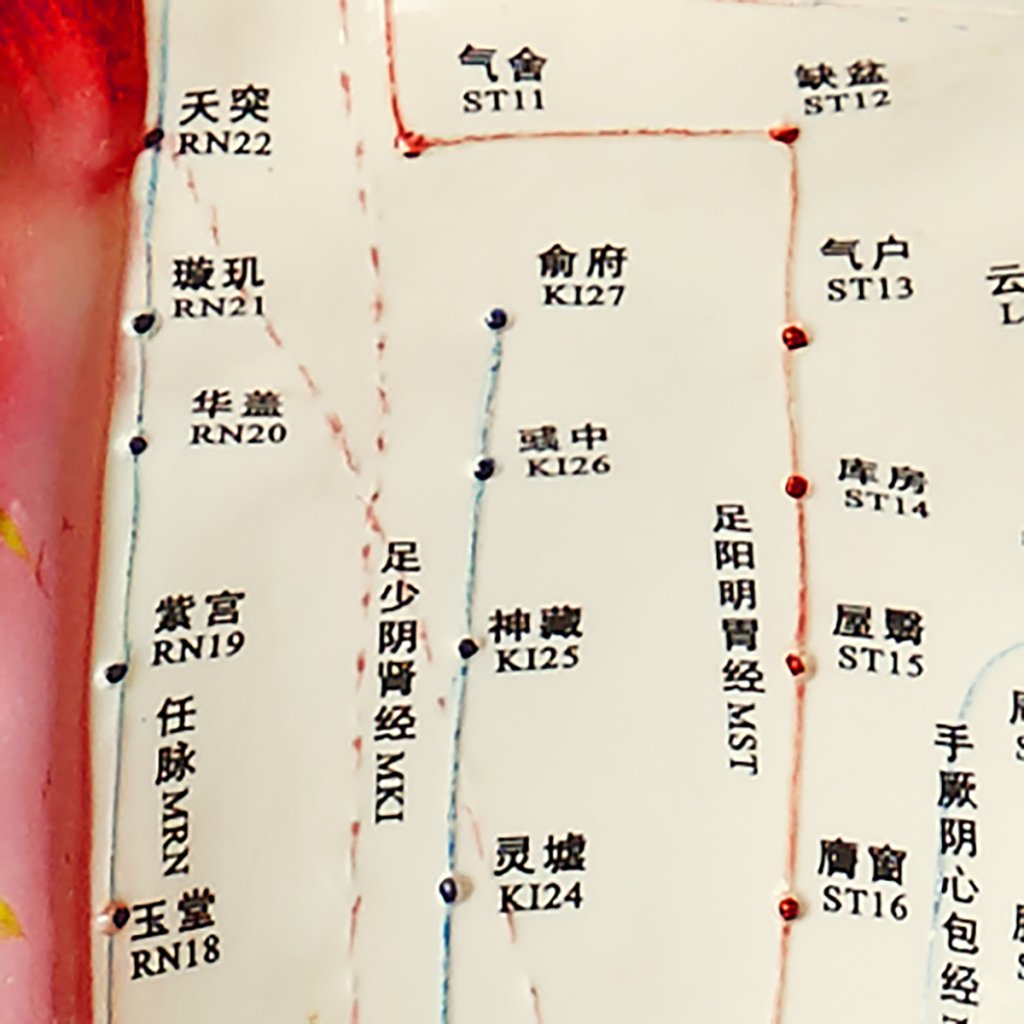 气舍
ST11
缺盆
ST12
天突
RN22
俞府
KI27
气户
ST13
璇玑
RN21
云
华盖
RN20
彧中
KI26
库房
ST14
足少阴肾经MKI
足阳明胃经MST
紫宫
RN19
神藏
KI25
屋翳
ST15
任脉MRN
手厥阴心包经
灵墟
KI24
膺窗
ST16
玉堂
RN18